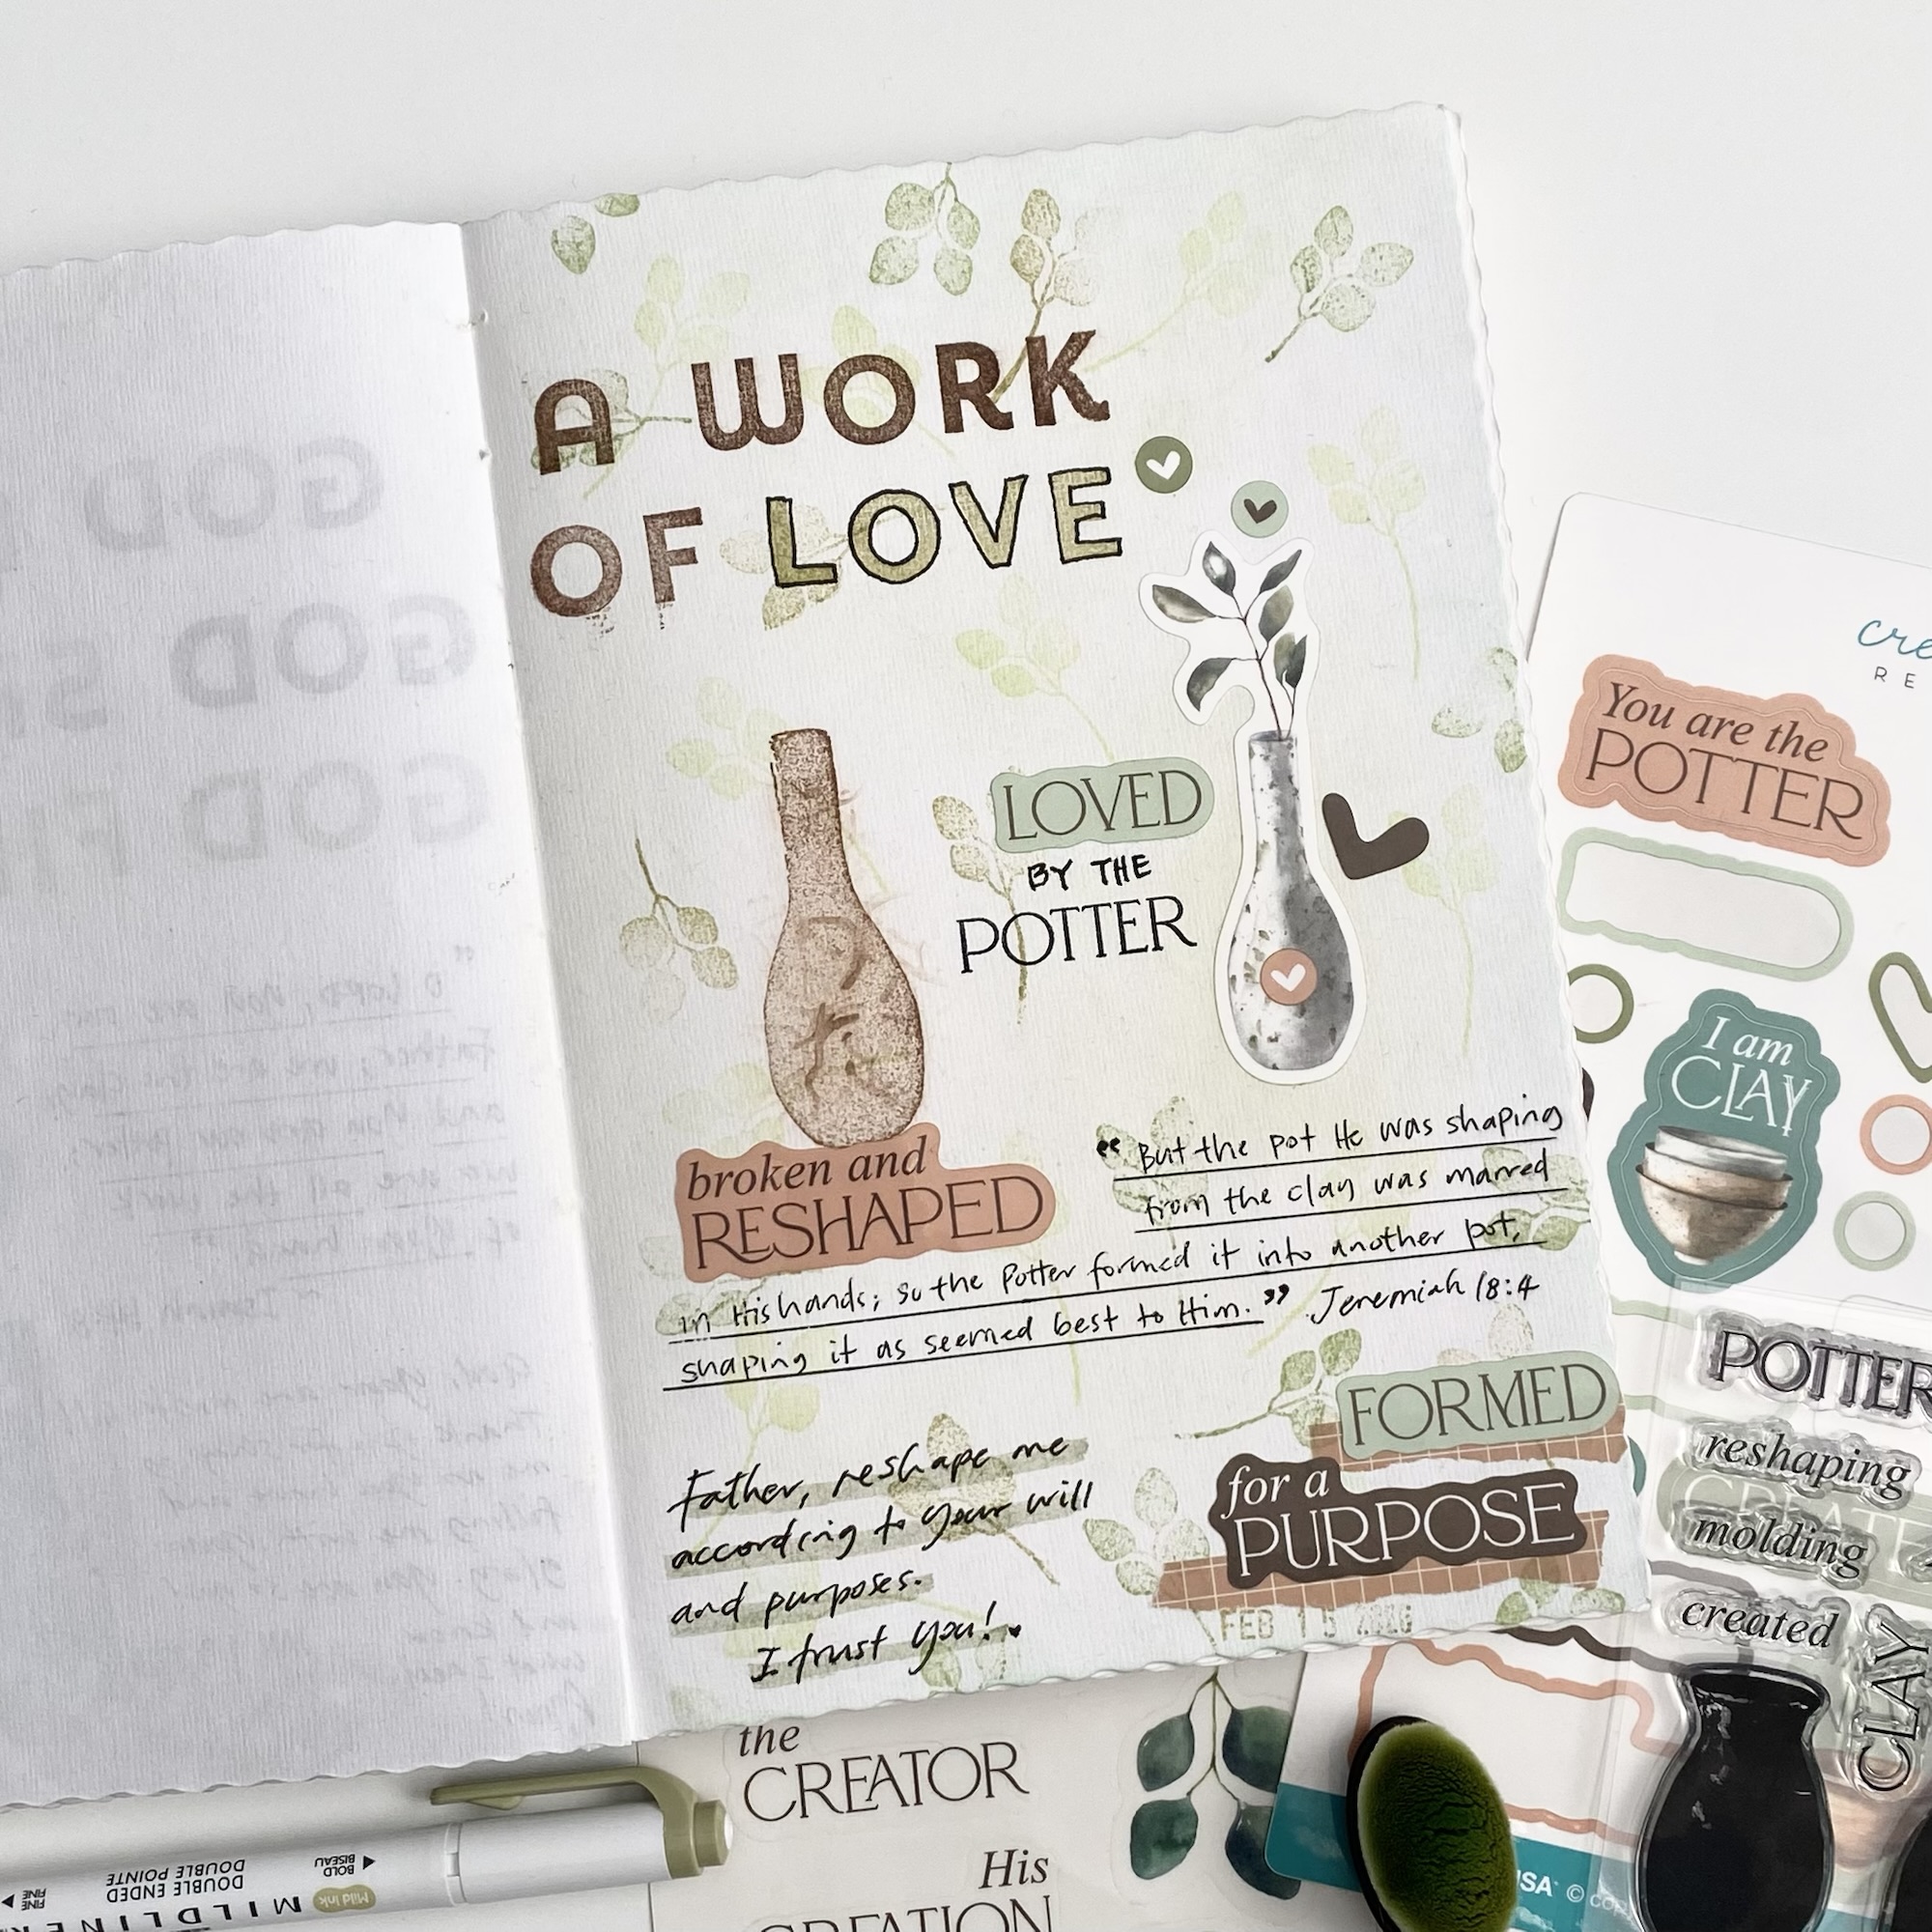 A WORK
OF LOVE
LOVED
BY THE
POTTER
broken and
RESHAPED
“ But the pot He was shaping
from the clay was marred
in His hands; so the Potter formed it into another pot,
shaping it as seemed best to Him.” Jeremiah 18:4
Father, reshape me
according to your will
and purposes.
I trust you!
FORMED
for a
PURPOSE
FEB 15
You are the
POTTER
I am
CLAY
POTTER
reshaping
molding
created
CLAY
the
CREATOR
His
CREATION
MILDLINER
DOUBLE ENDED
DOUBLE POINTE
Mild ink
BOLD
BISEAU
FINE
FINE
USA ©
GOD
GOD
GOD